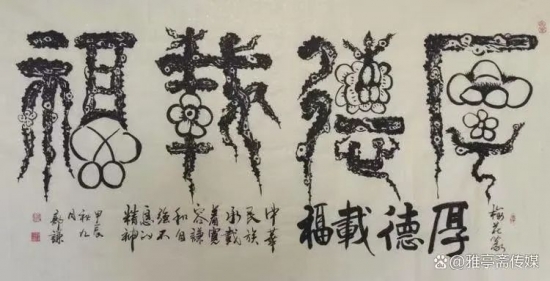 厚德載福
梅花篆
厚德載福
中華
民族
承載
着寬
容謙
和自
強不
息的
精神
甲辰
秋九
月
@雅亭斋传媒